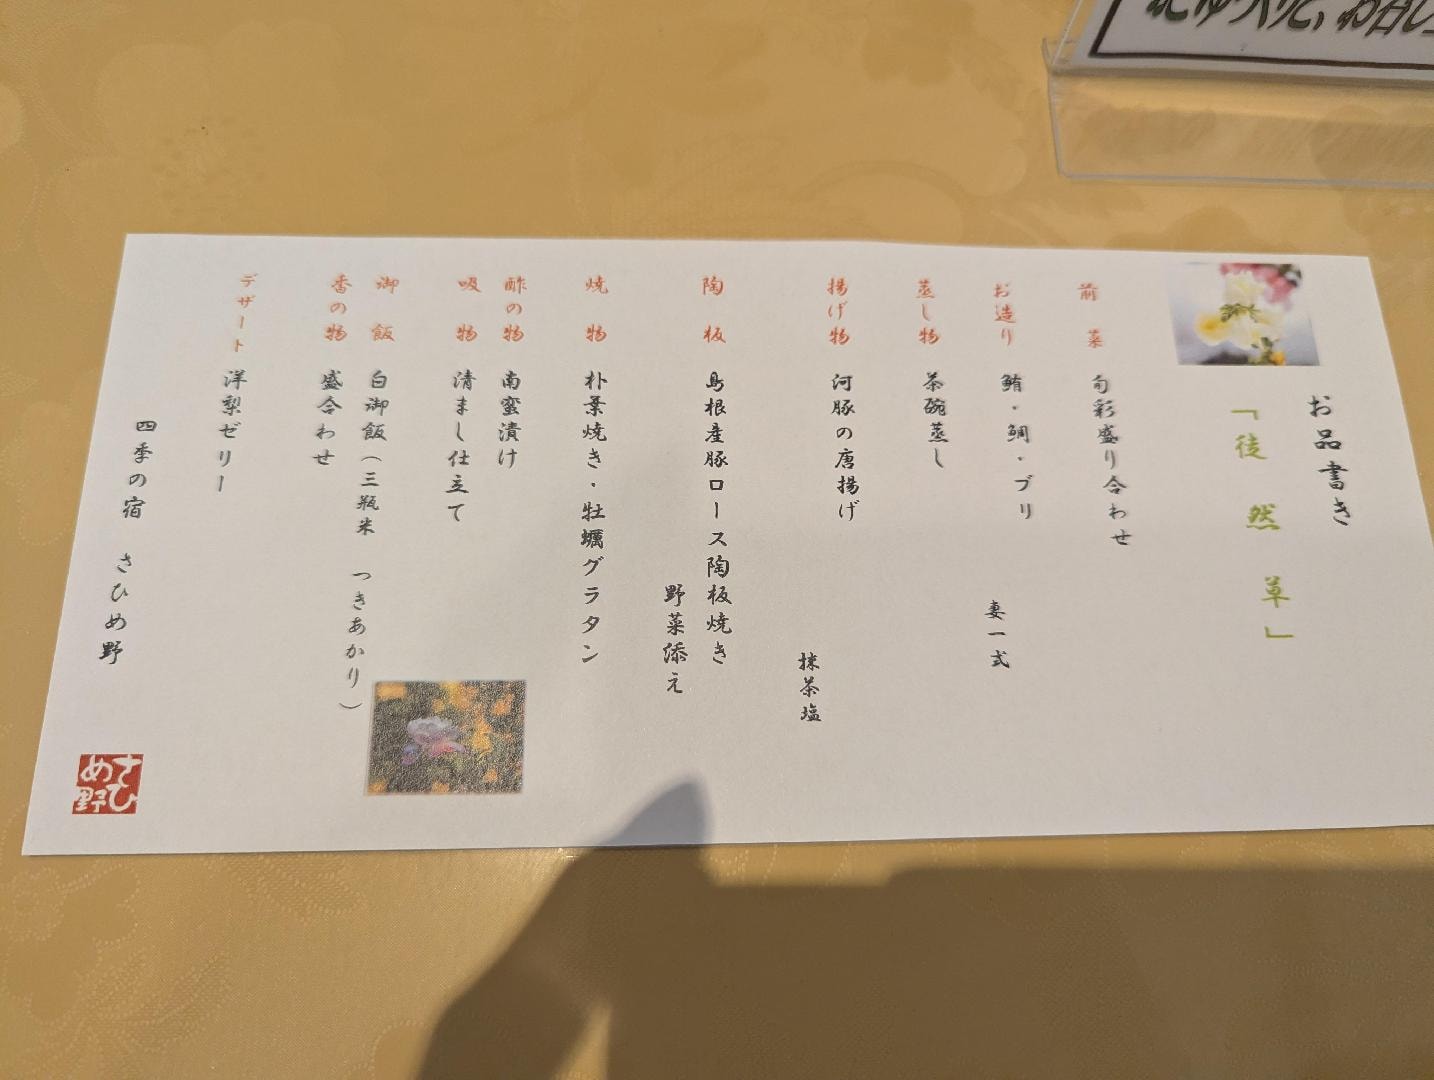 お品書き
「徒然草」
前菜 旬彩盛り合わせ
お造り 鮪・鯛・ブリ 妻一式
蒸し物 茶碗蒸し
揚げ物 河豚の唐揚げ 抹茶塩
陶板 島根産豚ロース陶板焼き
野菜添え
焼物 朴葉焼き・牡蠣グラタン
酢の物 南蛮漬け
吸物 清まし仕立て
御飯 白御飯(三瓶米 つきあかり)
香の物 盛合わせ
デザート 洋梨ゼリー
四季の宿 さひめ野
さひめ野